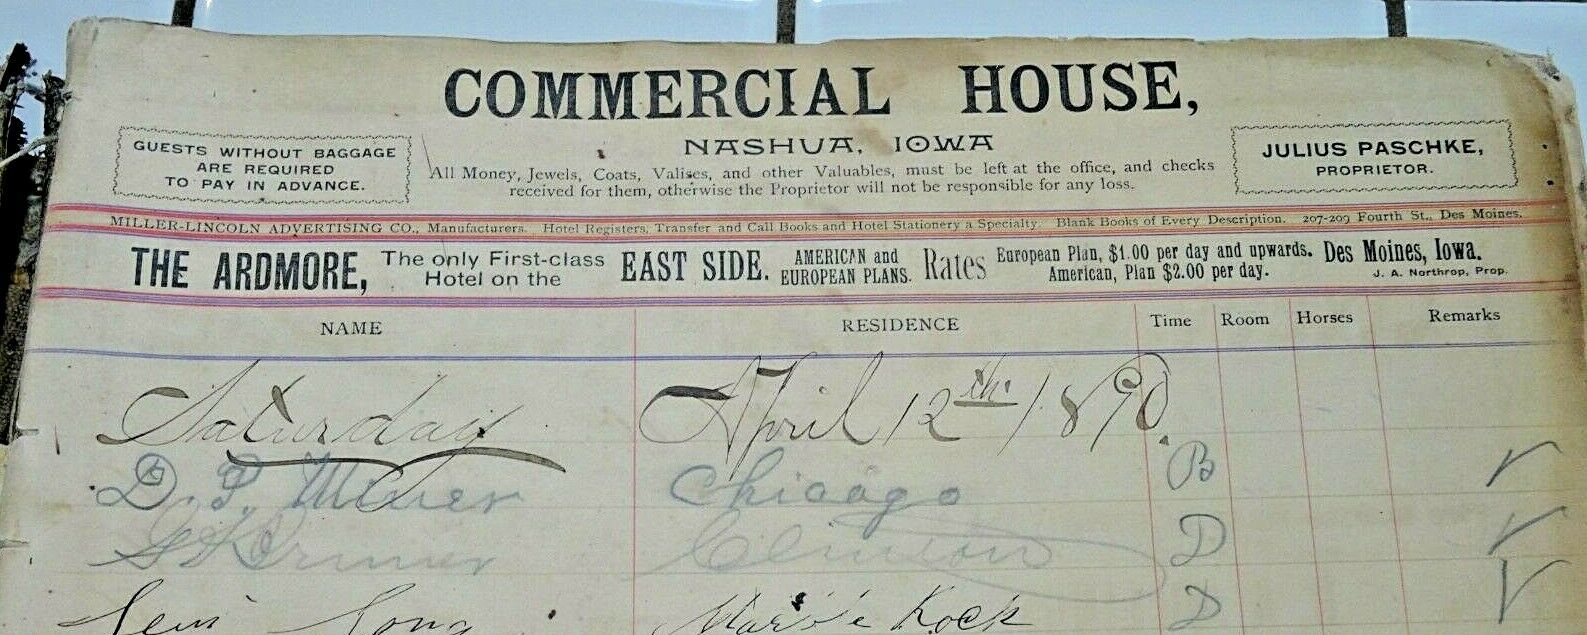 COMMERCIAL HOUSE,
NASHUA, IOWA
GUESTS WITHOUT BAGGAGE
ARE REQUIRED
TO PAY IN ADVANCE.
All Money, Jewels, Coats, Valises, and other Valuables, must be left at the office, and checks
received for them, otherwise the Proprietor will not be responsible for any loss.
JULIUS PASCHKE,
PROPRIETOR.
MILLER-LINCOLN ADVERTISING CO., Manufacturers. Hotel Registers, Transfer and Call Books and Hotel Stationery a Specialty. Blank Books of Every Description. 207-209 Fourth St., Des Moines.
THE ARDMORE,
The only First-class
Hotel on the
EAST SIDE.
AMERICAN and
EUROPEAN PLANS.
Rates
European Plan, $1.00 per day and upwards.
American, Plan $2.00 per day.
Des Moines, Iowa.
J. A. Northrop, Prop.
NAME RESIDENCE Time Room Horses Remarks
Saturday April 12th 1890.
D. P. Miner Chicago B √
Clinton D √
Long Rock D √